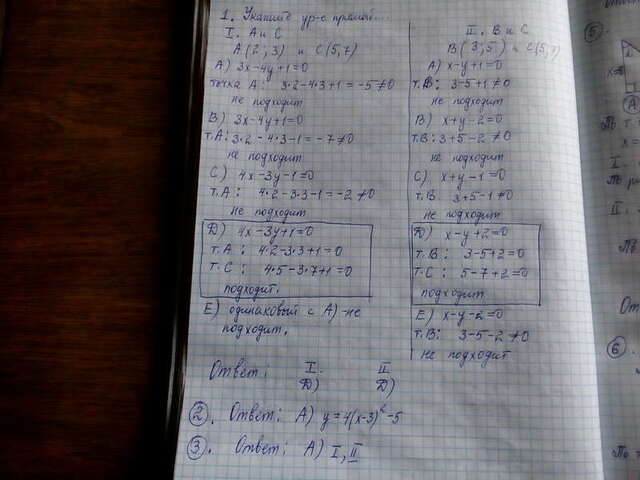 1. Укажите ур-е прямой...
I. A и C
A(2;3) и C(5;7)
A) 3x-4y+1=0
точка A: 3·2-4·3+1=-5≠0
не подходит
B) 3x-4y-1=0
т.A: 3·2-4·3-1=-7≠0
не подходит
C) 4x-3y-1=0
т.A: 4·2-3·3-1=-2≠0
не подходит
D) 4x-3y+1=0
т.A: 4·2-3·3+1=0
т.C: 4·5-3·7+1=0
подходит.
E) одинаковый с A)-не
подходит.
II. B и C
B(3;5) и C(5;7)
A) x-y+1=0
т.B: 3-5+1≠0
не подходит
B) x+y-2=0
т.B: 3+5-2≠0
не подходит
C) x+y-1=0
т.B 3+5-1≠0
не подходит
D) x-y+2=0
т.B: 3-5+2=0
т.C: 5-7+2=0
подходит
E) x-y-2=0
т.B: 3-5-2≠0
не подходит
Ответ: I. D) II D)
2. Ответ: A) y=4(x-3)²-5
3. Ответ: A) I, II
5
6.